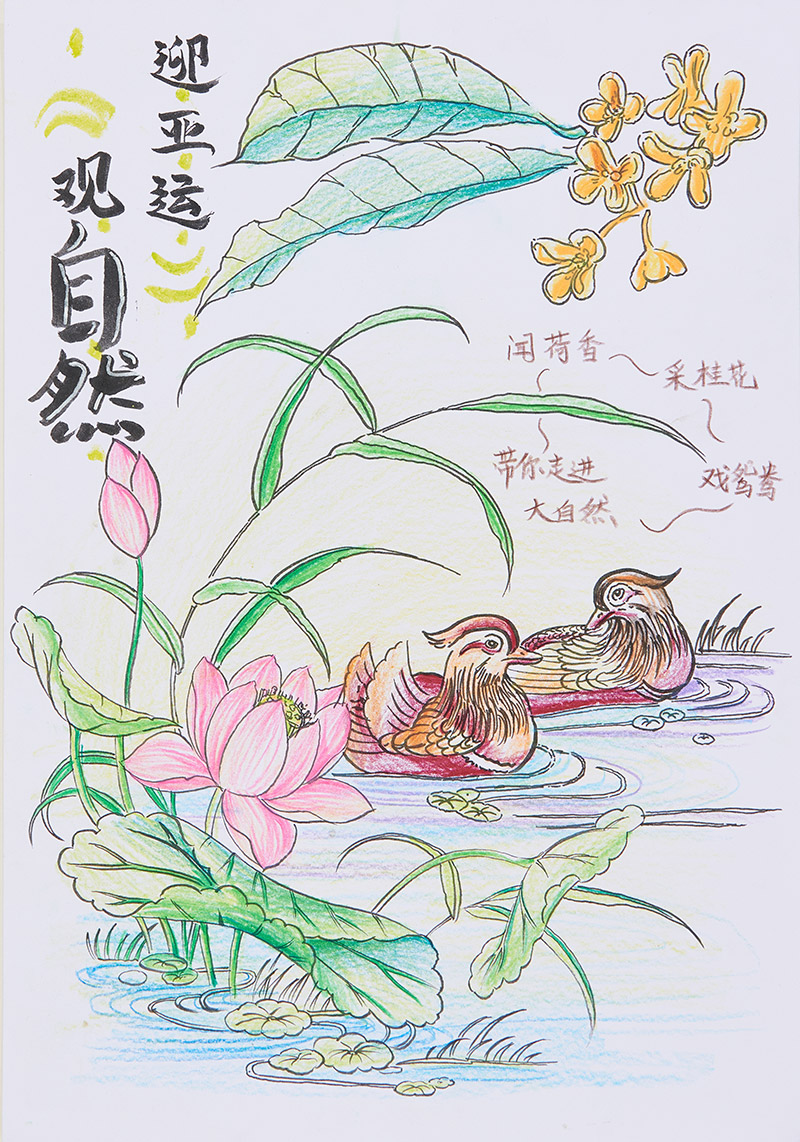 迎亚运
观自然
闻荷香
采桂花
戏鸳鸯
带你走进
大自然